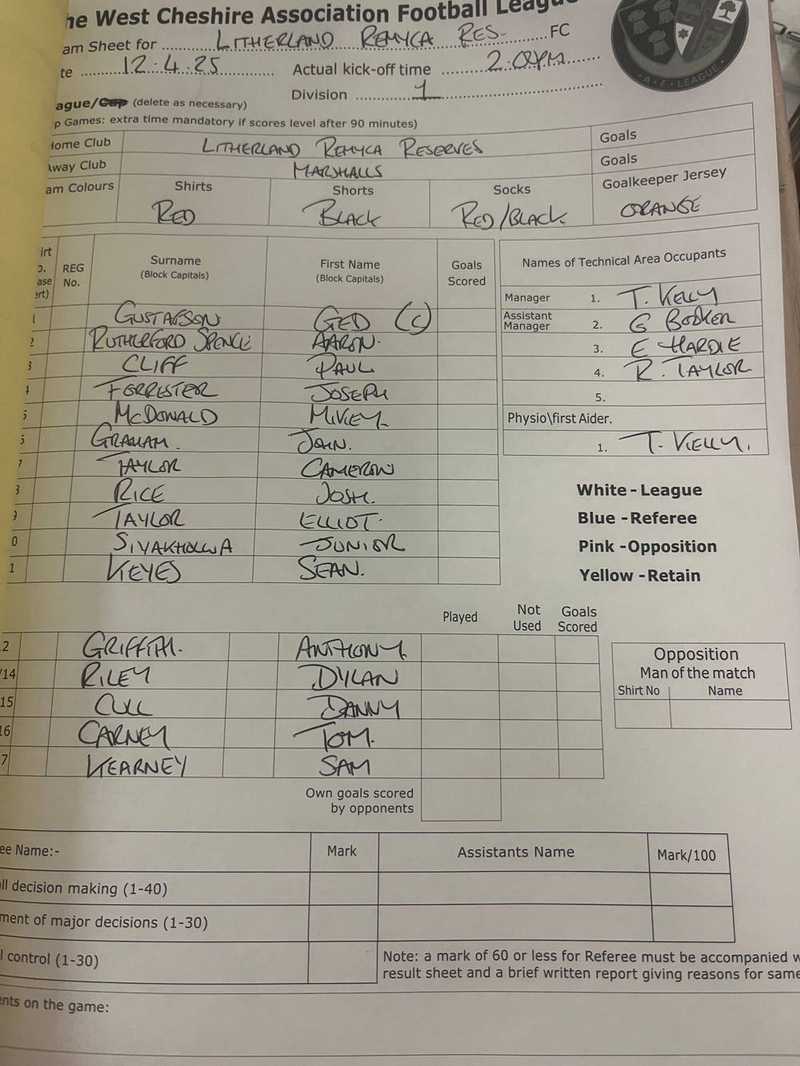 he West Cheshire Association Football Leagu
am Sheet for LITHERLAND REMYCA RES. FC
te 12.4.25 Actual kick-off time 2.00PM
Division 1
ague/Cup (delete as necessary)
p Games: extra time mandatory if scores level after 90 minutes)
Home Club LITHERLAND REMYCA RESERVES Goals
Away Club MARSHALLS Goals
am Colours Shirts Shorts Socks Goalkeeper Jersey
RED BLACK RED/BLACK ORANGE
A F LEAGUE
irt
o.
ase
ert)
REG No. Surname (Block Capitals) First Name (Block Capitals) Goals Scored
1 GUSTAFSON GED (C)
2 RUTHERFORD SPENCE AARON.
3 CLIFF PAUL
4 FORRESTER JOSEPH
5 MCDONALD MIKEY
6 GRAHAM. JOHN.
7 TAYLOR CAMERON
8 RICE JOSH.
9 TAYLOR ELLIOT.
0 SIYAKHOLWA JUNIOR
1 KEYES SEAN.
Names of Technical Area Occupants
Manager 1. T. KELLY
Assistant Manager 2. G BOOKER
3. E HARDIE
4. R. TAYLOR
5.
Physio\first Aider.
1. T. KIELLY.
White - League
Blue - Referee
Pink - Opposition
Yellow - Retain
Played Not Used Goals Scored
2 GRIFFITH. ANTHONY.
/14 RILEY DYLAN
15 CULL DANNY
16 CARNEY TOM.
7 KEARNEY SAM
Own goals scored
by opponents
Opposition
Man of the match
Shirt No Name
ee Name:- Mark Assistants Name Mark/100
ll decision making (1-40)
ment of major decisions (1-30)
l control (1-30)
Note: a mark of 60 or less for Referee must be accompanied w
result sheet and a brief written report giving reasons for same
ents on the game: